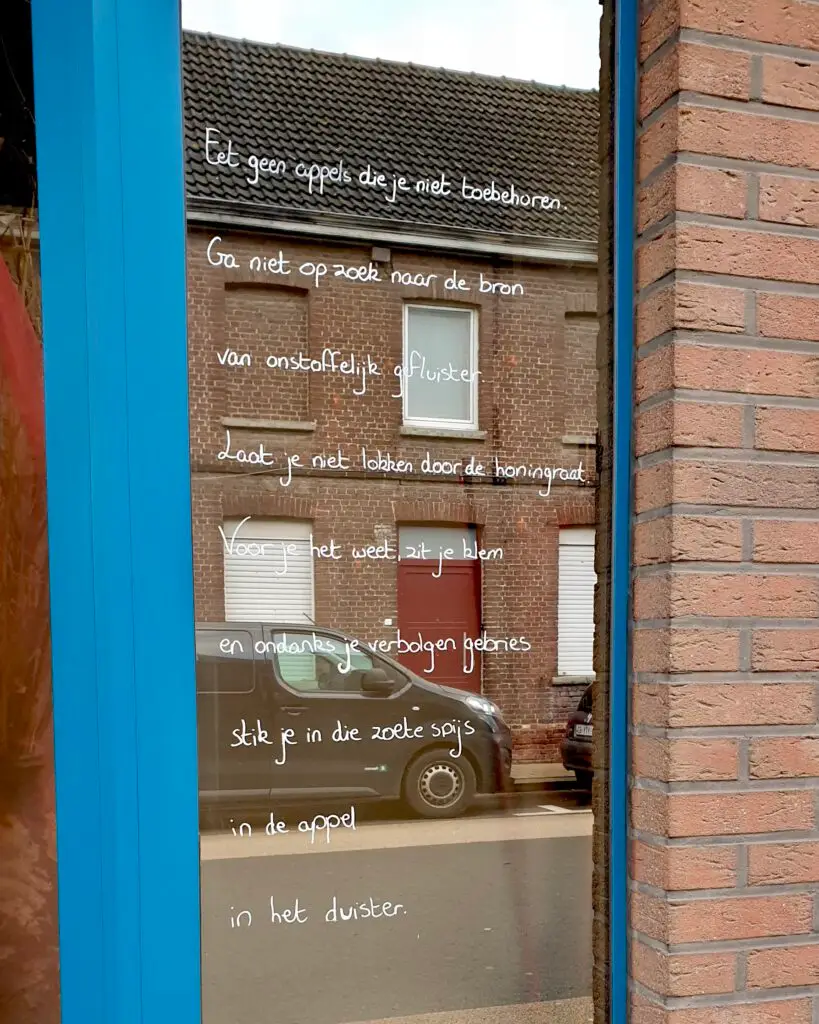 Eet geen appels die je niet toebehoren.
Ga niet op zoek naar de bron
van onstoffelijk gefluister.
Laat je niet lokken door de honingraat.
Voor je het weet, zit je klem
en ondanks je verbolgen gebries
stik je in die zoete spijs
in de appel
in het duister.